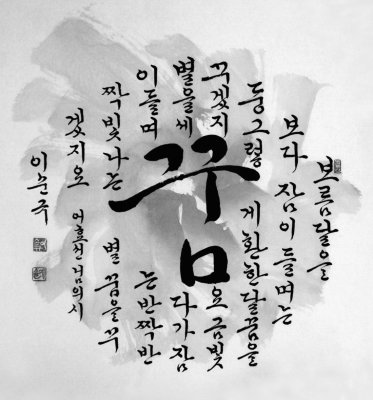 꿈
보름달을
보다 잠이 들며는
둥그렇게 환한 달꿈을
꾸겠지요 금빛
별을 세다가 잠
이 들며는 반짝반
짝 빛나는 별 꿈을 꾸
겠지오 어효선 님의 시
이순국